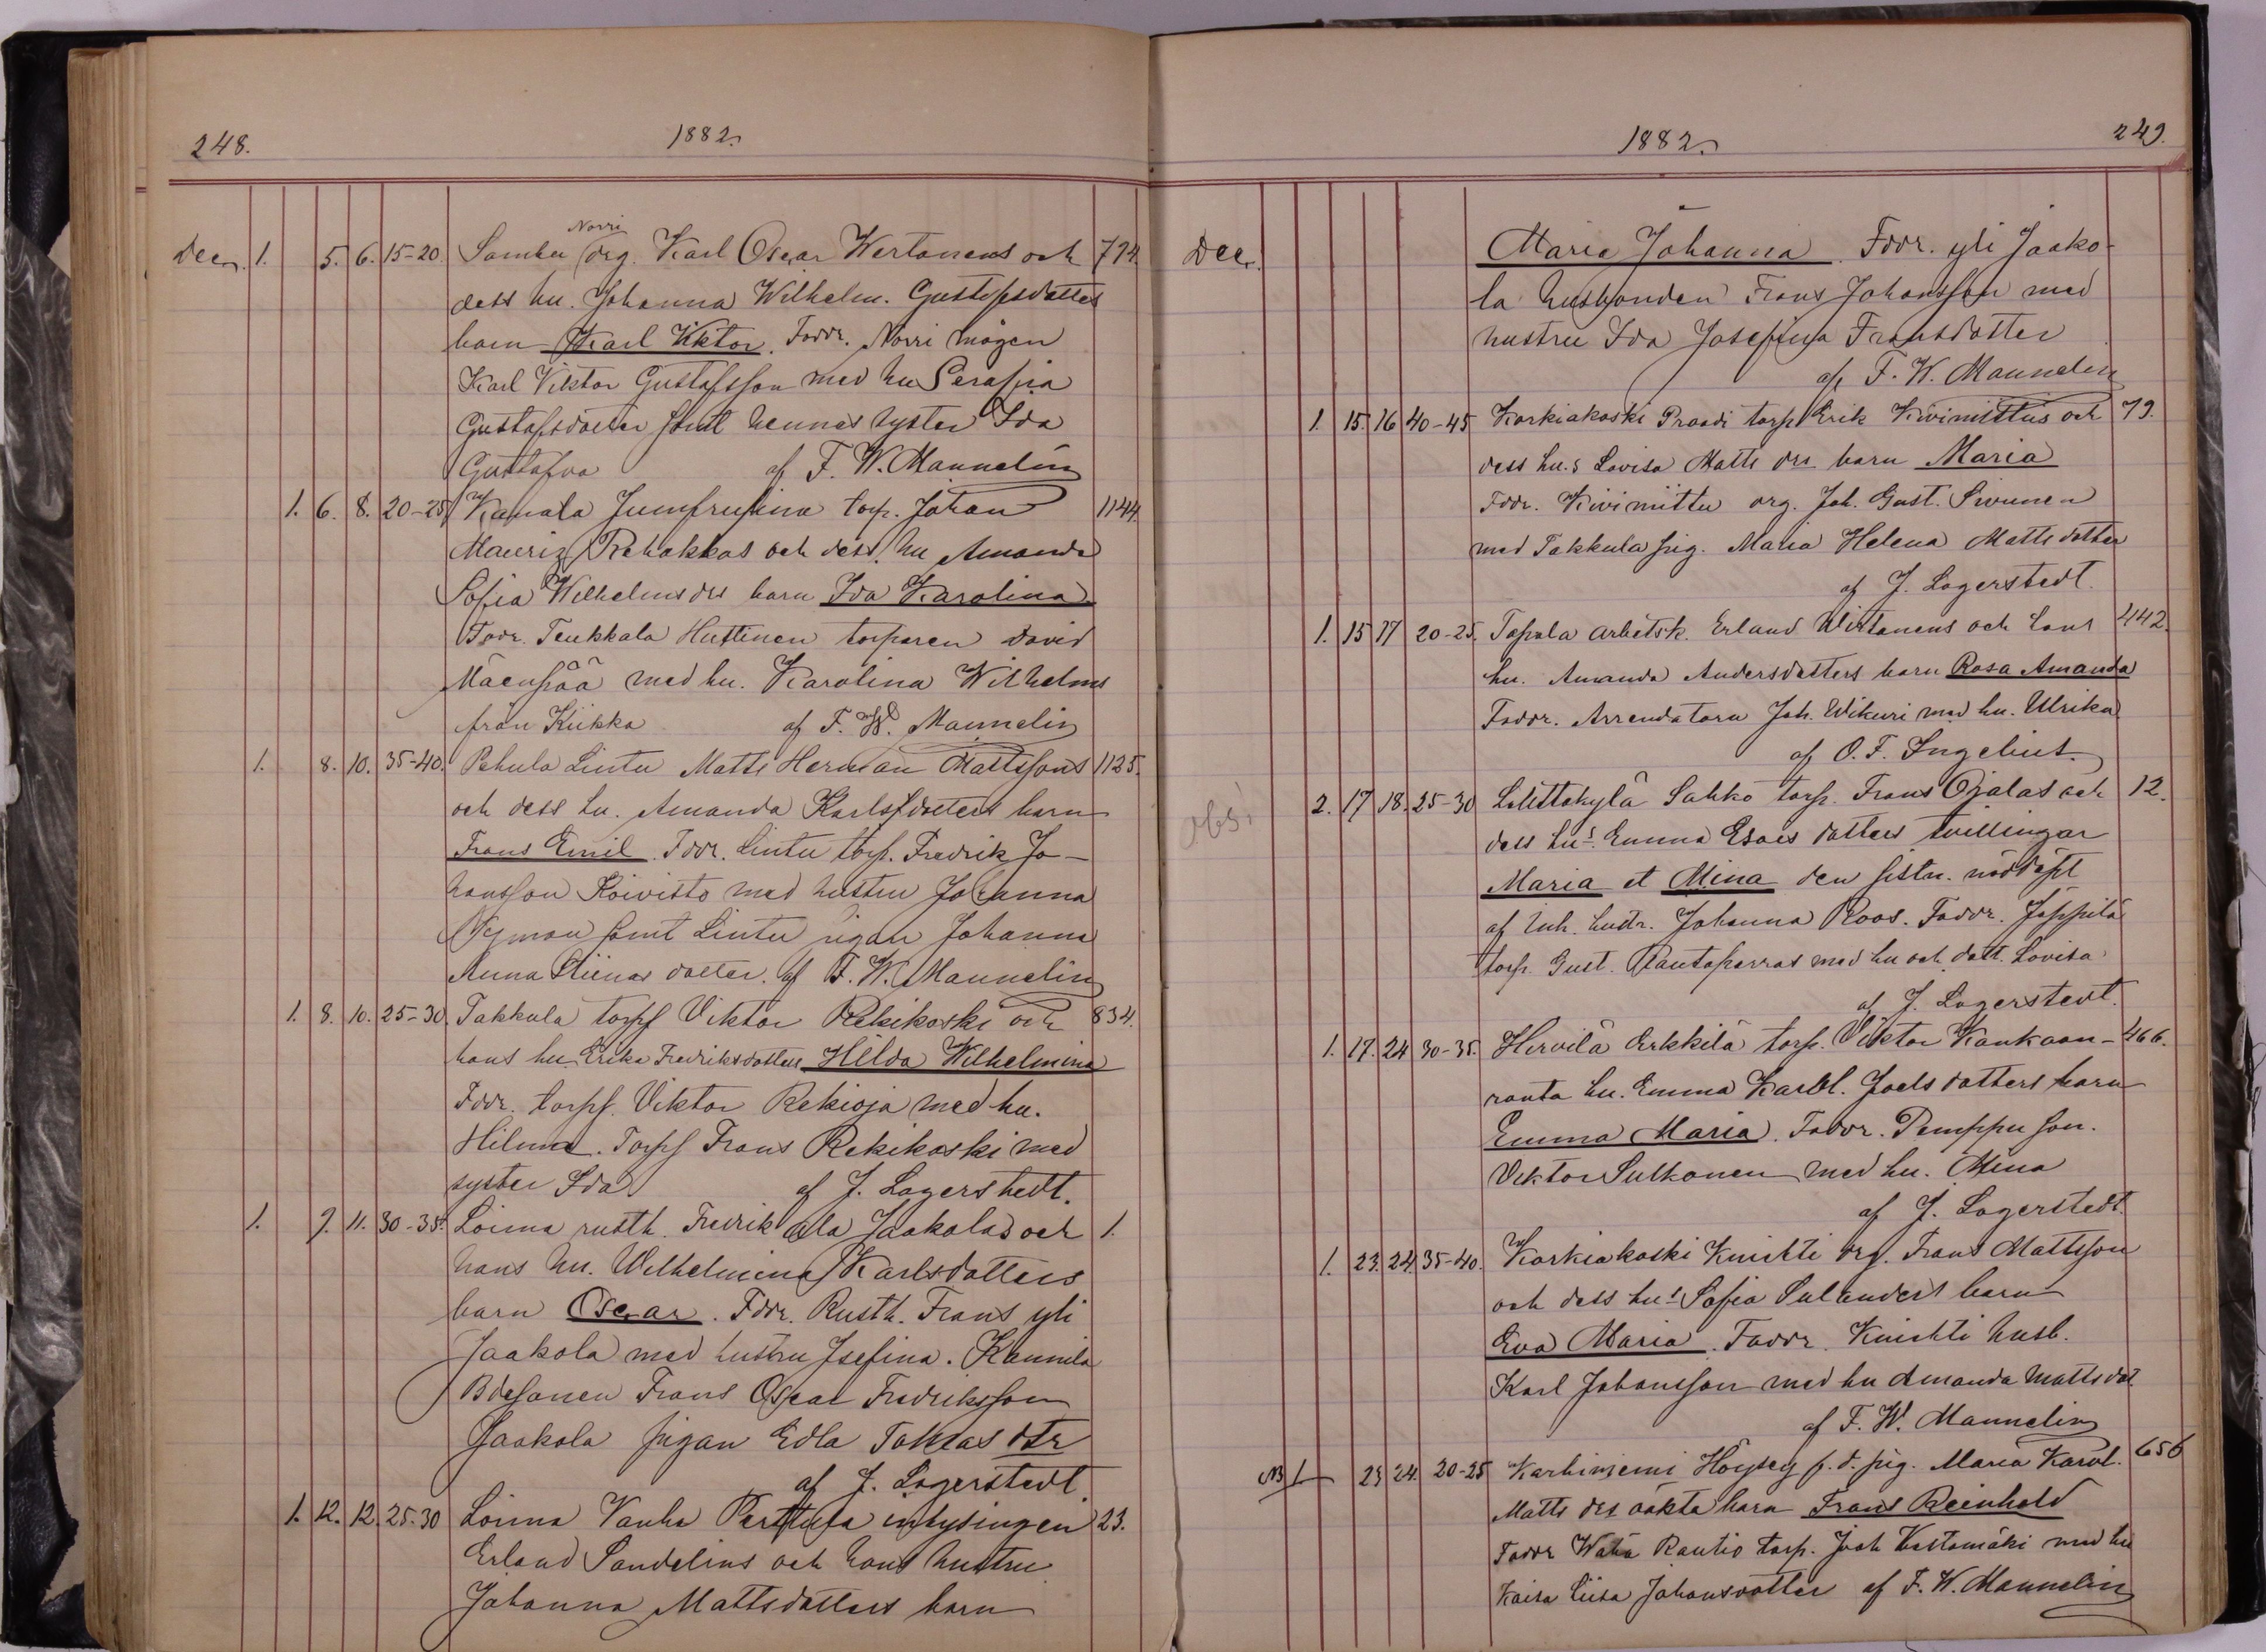 248.
1882.
Norri
Dec. 1. 5. 6. 15-20. Sambu drg. Karl Oscar Wertanens och 774.
dess hu. Johanna Wilhelm. Gustafsdotters
barn Karl Viktor. Faddr. Norri mågen
Karl Viktor Gustafsson med hu Serafia
Gustafsdotter samt hennes syster Ida
Gustafva af F. W. Mannelin
1. 6. 8. 20-25 Kanala Jumfrusina torp. Johan 1144.
Mauriz Rehakkas och dess hu Amanda
Sofia Wilhelmsdrs barn Ida Karolina
Faddr. Teukkala Huttinen torparen David
Mäenpää med hu. Karolina Wilhelms
från Kiikka af F. W. Mannelin
1. 8. 10. 35-40. Pehula Lintu Matts Herman Mattssons 1125.
och dess hu. Amanda Karlsdotters barn
Frans Emil. Fddr. Lintu torp. Fredrik Jo-
hansson Koivisto med hustru Johanna
samt Lintu pigan Johanna
Anna Stiinas dotter. af F. W. Mannelin
1. 8. 10. 25-30 Takkula torpf Viktor Rekikoski och 834.
hans hu. Erika Fredriksdotters Hilda Wilhelmina
Fddr. torpf. Viktor Rekioja med hu.
Hilma. Torpf Frans Rekikoski med
syster Ida af J. Lagerstedt.
1. 9. 11. 30-35. Loima rusth. Fredrik ala Jaakolas och 1.
hans hu. Wilhelmina Karlsdotters
barn Oscar. Fddr. Rusth. Frans yli
Jaakola med hustru Jsefina. Kannila
Bdesonen Frans Oscar Fredriksson
Jaakola pigan Edla Tobias dtr
af J. Lagerstedt
1. 12. 12. 25-30 Loima Vanha Perttula inhysingen 23.
Erland Sandelins och hans hustru
Johanna Mattsdotters barn
1882.
249.
Dec. Maria Johanna. Fddr. yli Jaako-
la husbonden Frans Johansson med
hustru Ida Josefina Fransdotter
af F. W. Mannelin
1. 15. 16 40-45 Korkiakoski Praadi torp Erik Kivimittus och 79.
dess hu.s Lovisa Matts drs barn Maria
Fddr. Kivimittu drg. Joh. Gust. Sivunen
med Takkula pig. Maria Helena Mattsdotter
af J. Lagerstedt.
1. 15 17 20-25. Tapala arbetsk. Erland Wirtanens och hans 442.
hu. Amanda Andersdotters barn Rosa Amanda
Faddr. Arrendatorn Joh. Wikuri med hu. Ulrika
af O. F. Ingelius.
obs! 2. 17 18. 25-30 Sahko torp. Frans Ojalas och 12.
dess hu.s Emma Esaes dotters tvillingar
Maria et Mina den sistn. nöddöpt
af inh. hustr. Johanna Roos. Faddr. Jäppilä
torp. Gust. Rautaparras med hu och dott. Lovisa
af J. Lagerstedt.
1. 17. 24 30-35. Hirvilä Erkkilä torp. Viktor Kankaan- 466.
ranta hu. Emma Karol. Joels dotters barn
Emma Maria. Faddr. Pemppu son.
Viktor Sulkonen med hu. Mina
af J. Lagerstedt.
1. 23. 24. 35-40. Korkiakoski Knihti drg. Frans Mattsson
och dess hu.s Sofia Sulanders barn
Eva Maria. Faddr. Knihti husb.
Karl Johansson med hu Amanda Mattsdot
af F. W. Mannelin
NB 1 23 24. 20-25 Karhiniemi f.d. pig. Maria Karol. 656
Matts drs oäkta barn Frans Reinhold
Faddr Rautio torp. Joh Kostamäki med hu
Kaisa Liisa Johansdotter af F. W. Mannelin